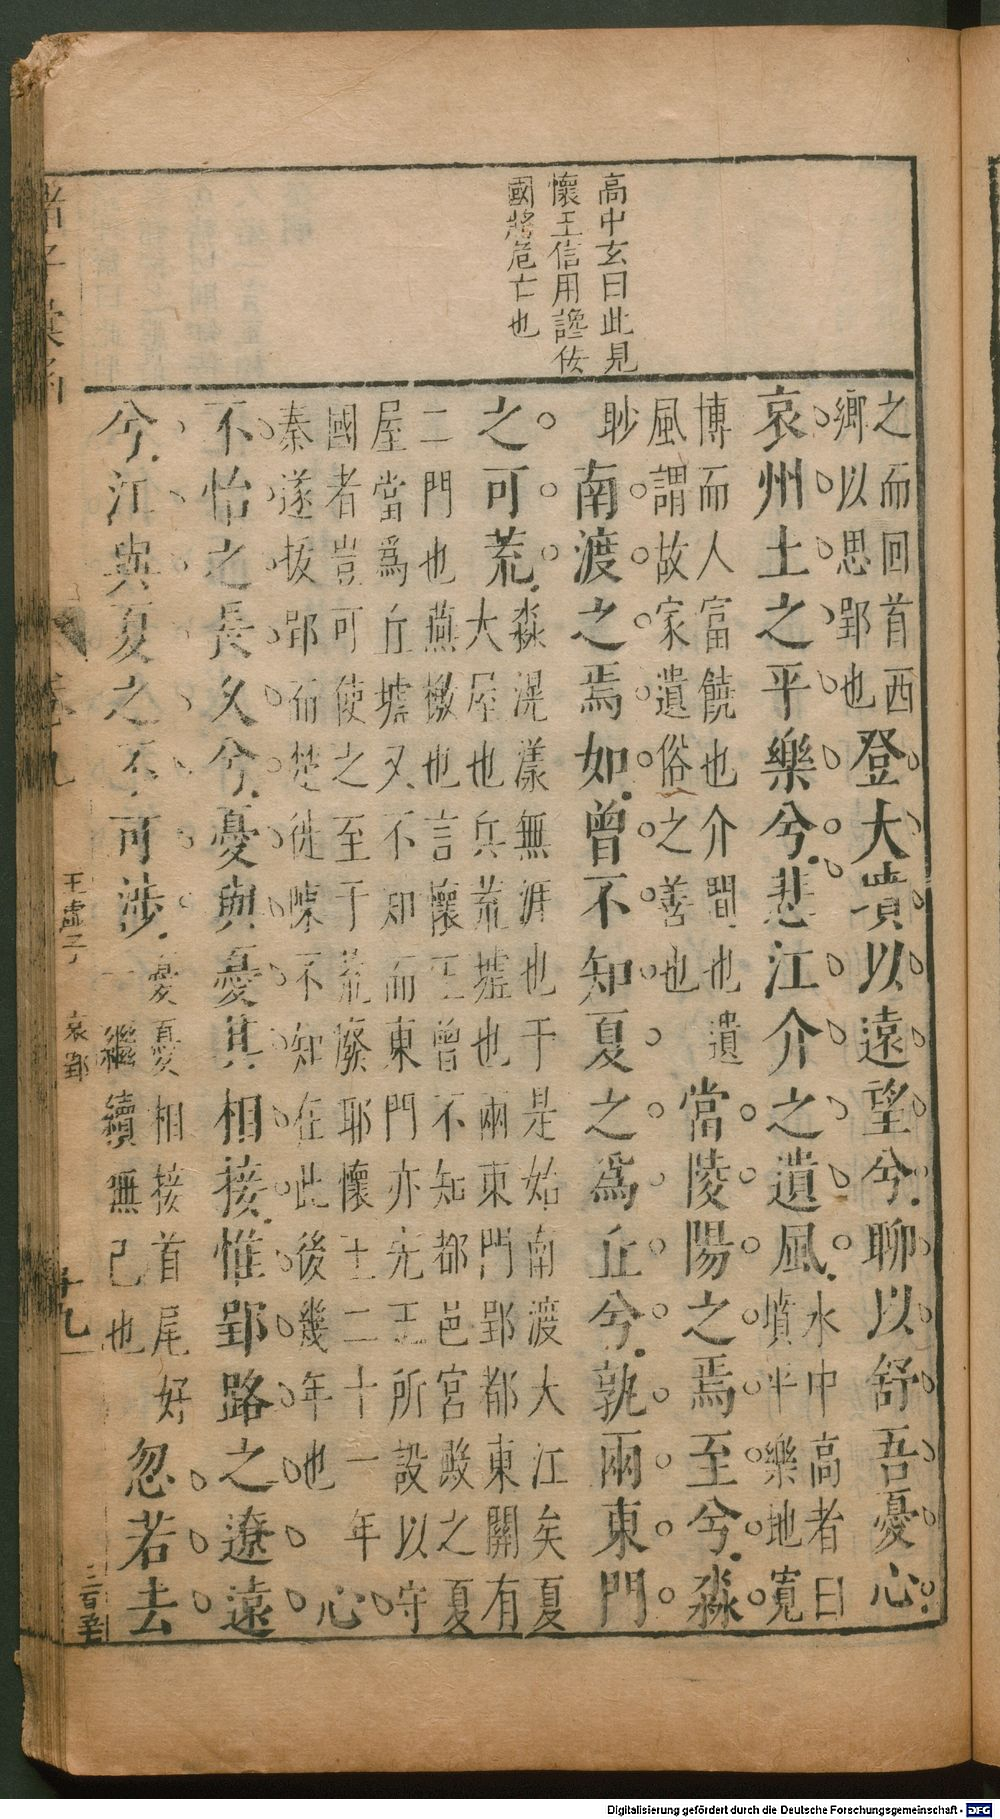 高中玄曰此見
懷王信用讒佞
國將危亡也
之而回首西
鄉以思郢也
登大墳以遠望兮聊以舒吾憂心
哀州土之平樂兮悲江介之遺風
水中高者曰
墳平樂地寬
博而人富饒也介間也遺
風謂故家遺俗之善也
當陵陽之焉至兮淼
眇
南渡之焉如曾不知夏之爲丘兮孰兩東門
之可荒
淼滉漾無涯也于是始南渡大江矣夏
大屋也兵荒墟也兩東門郢都東關有
二門也燕檄也言懷王曾不知都邑宮殿之夏
屋當爲丘墟又不知而東門亦先王所設以守
國者豈可使之至于荒廢耶懷王二十一年
秦遂拔郢而楚徙陳不知在此後幾年也
心
不怡之長久兮憂與憂其相接惟郢路之遼遠
兮江與夏之不可涉
憂憂相接首尾好
一繼續無已也
忽若去
諸子彙函
卷九
玉虛子 哀郢
十九
Digitalisierung gefördert durch die Deutsche Forschungsgemeinschaft - DFG